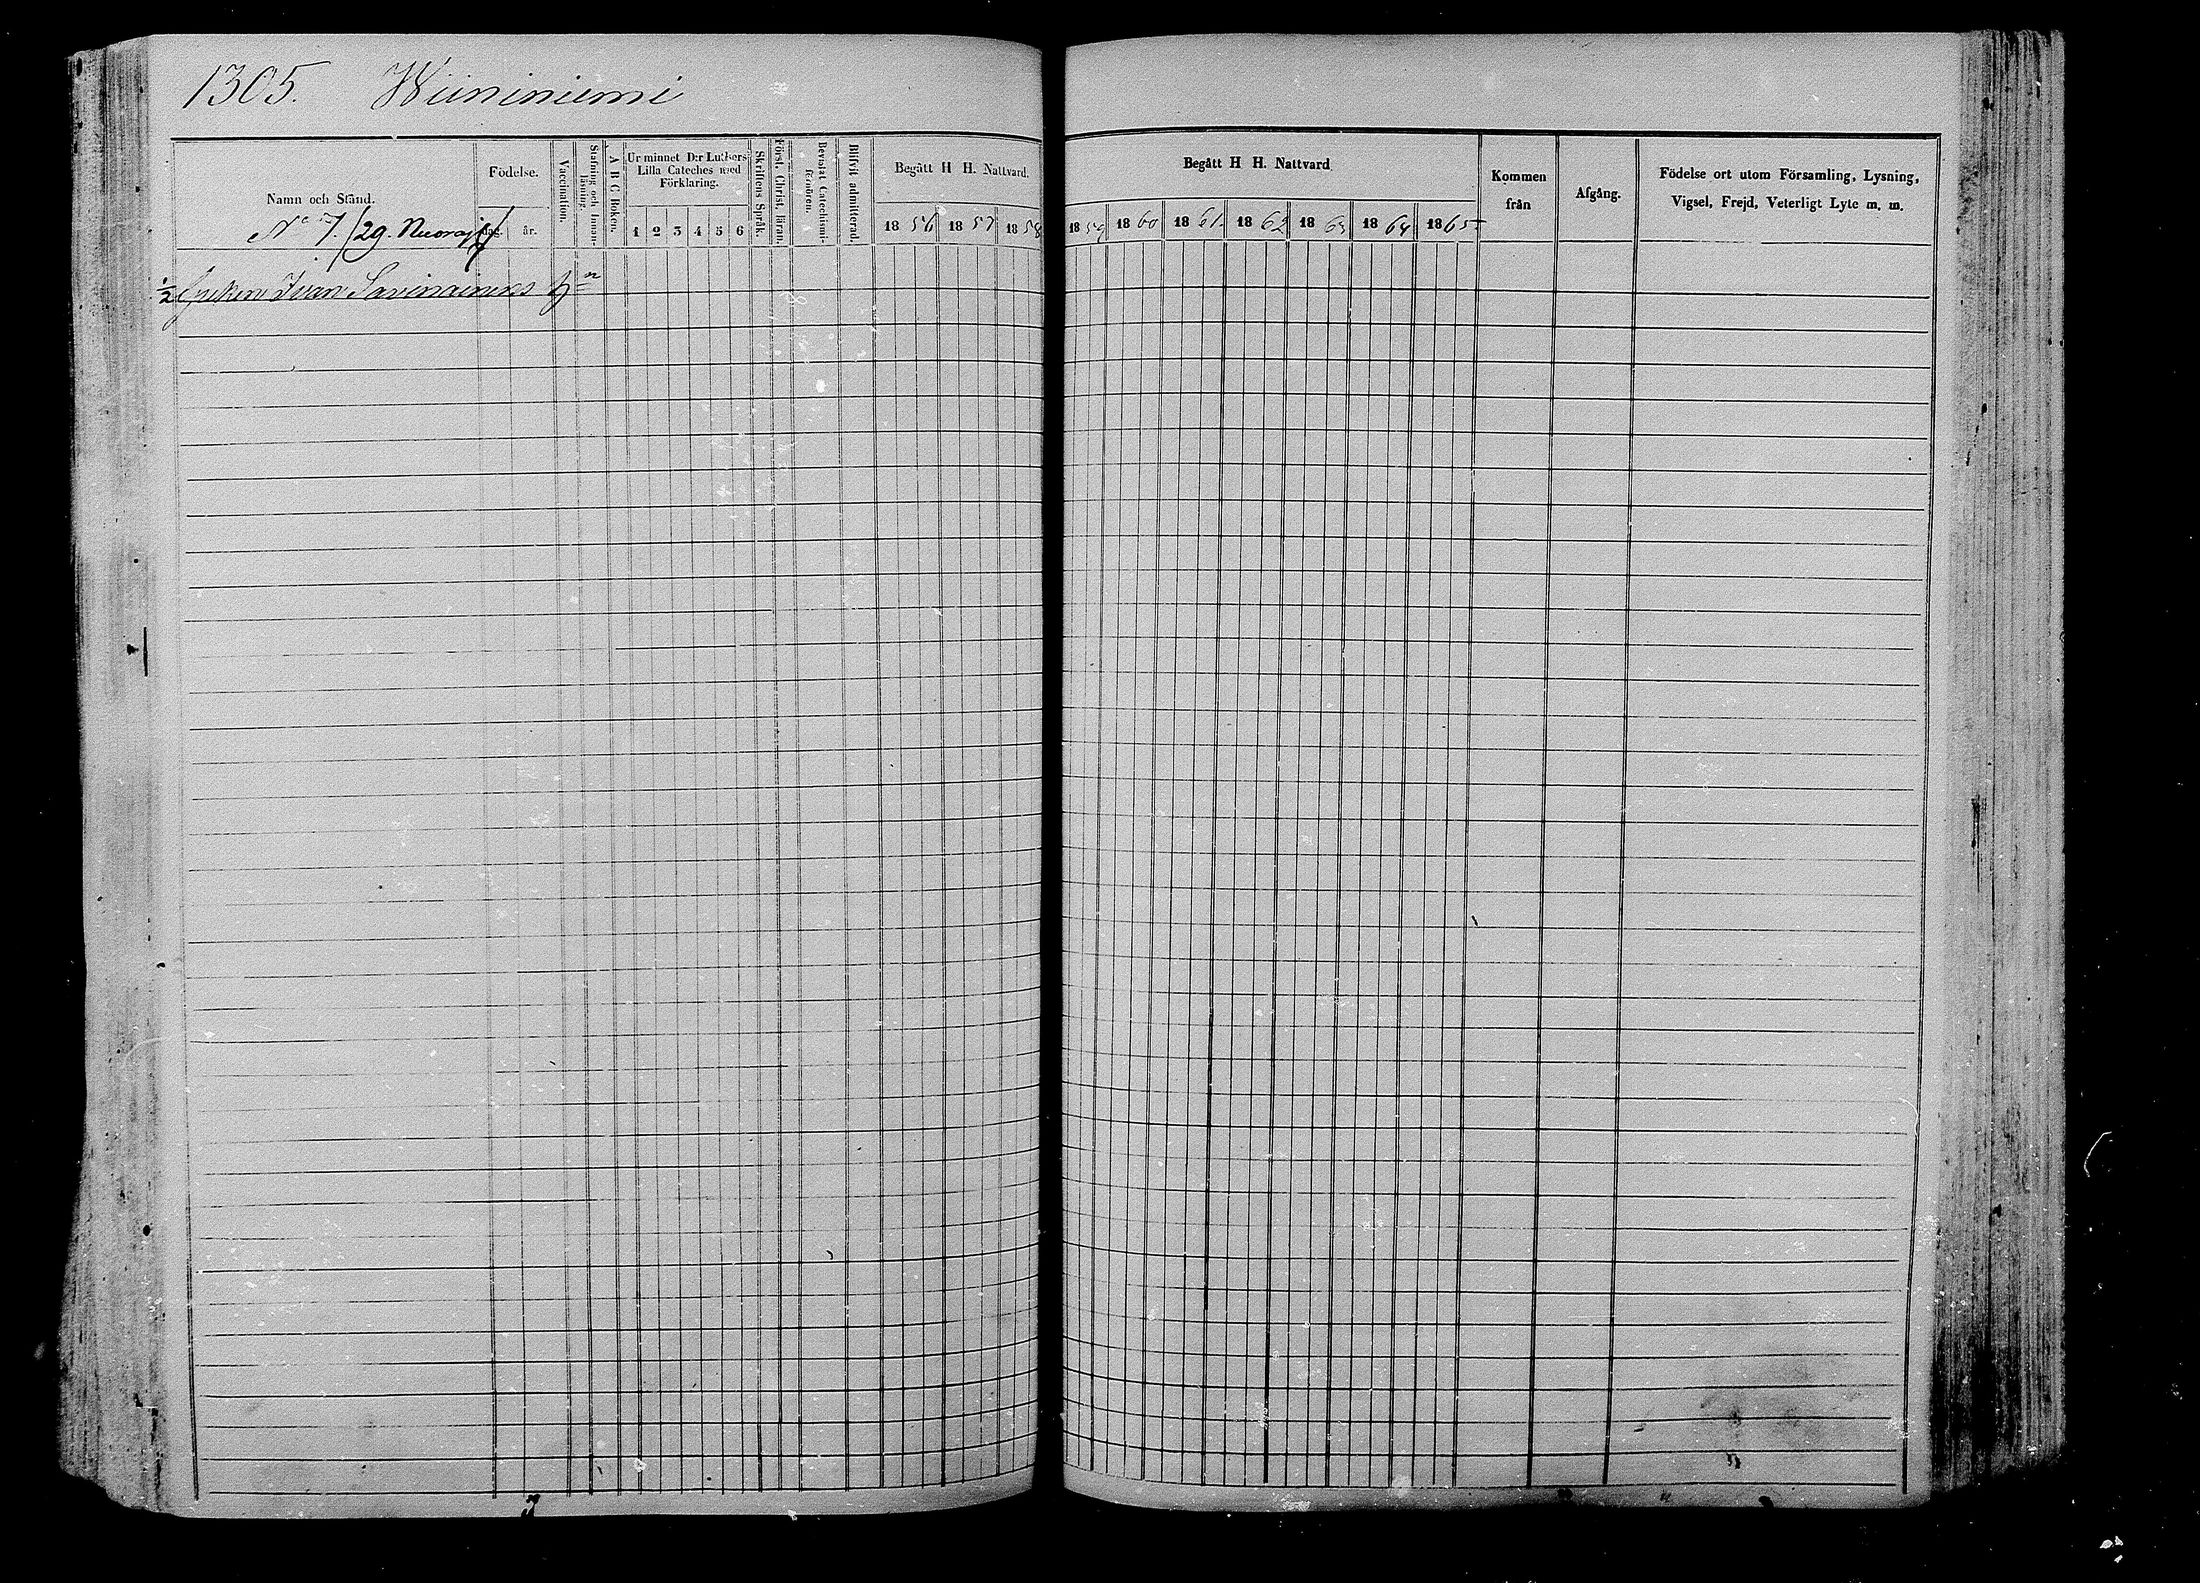 1305. Wiininiemi
Namn och Stånd.
Födelse.
dag.
år.
Vaccination.
Stafning och Innanläsning
A B C Boken.
Ur minnet D:r Luthers Lilla Cateches med Förklaring.
1 2 3 4 5 6
Skriftens Språk.
Först. Christ. läran.
Bevistat Catechismiförhören.
Blifvit admitterad.
Begått H H. Nattvard.
1856 1857 1858
Begått H H. Nattvard.
1859 1860 1861. 1862 1863 1864 1865
Kommen från
Afgång.
Födelse ort utom Församling, Lysning,
Vigsel, Frejd, Veterligt Lyte m. m.
No 7. (29.
1/2 Ivan Savinainens